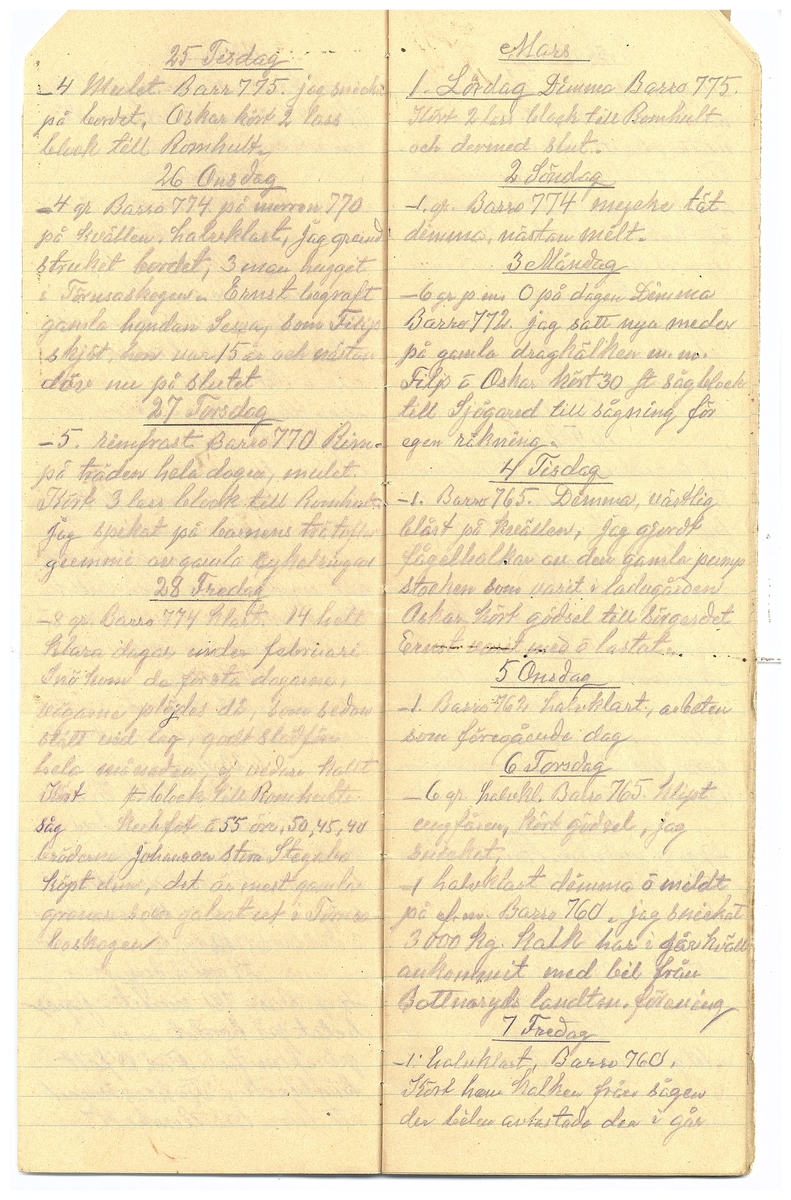 25 Tisdag
-4 Mulet. Barr 775. jag snick
på bordet, Oskar kört 2 lass
block till Romhult.
26 Onsdag
-4 gr. Barro 774 på morron 770
på kvällen, halvklart, jag grund
struket bordet, 3 man hugget
i Törnsaskogen. Ernst begraft
gamla hyndan Sessa, som Filip
skjöt, hon var 15 år och nästan
döv nu på slutet
27 Torsdag
-5. rimfrost Barro 770 Rim-
på träden hela dagen, mulet
Kört 3 lass block till Romhult.
Jag spekat på barnens trätofflor
gummi av gamla cykelringar
28 Fredag
-8 gr. Barro 774 klart. 14 helt
klara dagar under februari
Snö kom de första dagarne,
vägarne plöjdes då, som sedan
stått vid lag, godt slädföre
hela månaden, ej vidare kallt
Kört ft block till Romhults
såg Kubikfot à 55 öre, 50, 45, 40
bröderna Johanson Stora Stegabo
köpt dem, det är mest gamla
granar som galrat ut i Törnsa-
boskogen
Mars
1. Lördag Dimma Barro 775.
Kört 2 lass block till Romhult
och dermed slut.
2 Söndag
-1. gr. Barro 774 mycke tät
dimma, nästan mélt.
3 Måndag
-6 gr p m. 0 på dagen Dimma
Barro 772. jag satt nya meder
på gamla dragkälken m. m.
Filip å Oskar kört 30 st sågblock
till Sjögared till sågning för
egen räkning.
4 Tisdag
-1. Barro 765. Dimma, västlig
blåst på kvällen, Jag gjordt
fågelholkar av den gamla pump
stocken som varit i ladugården
Oskar kört gödsel till Sörgärdet
Ernst varit med å lastat.
5 Onsdag
-1. Barro 762 halvklart, arbeten
som föregående dag
6 Torsdag
-6 gr. halvkl. Barro 765. klipt
ungfåren, kört gödsel, jag
snicket.
-1 halvklart dimma å mildt
på e.m. Barro 760. jag snickat
3000 kg. Kalk har i går kväll
ankommit med bil från
Bottnaryds landtm. förening
7 Fredag
-1 halvklart, Barro 760.
Kört hem kalken från sågen
der bilen avlastade den i går